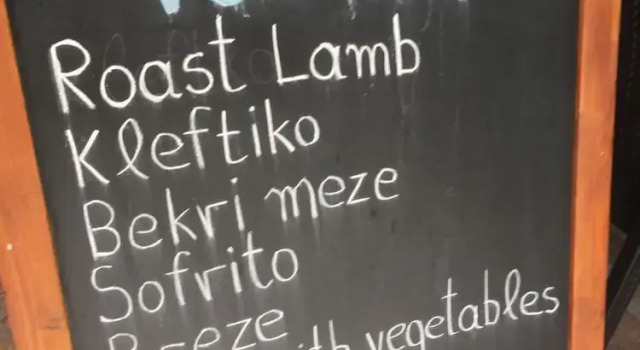 Roast Lamb
Kleftiko
Bekri meze
Sofrito
with vegetables